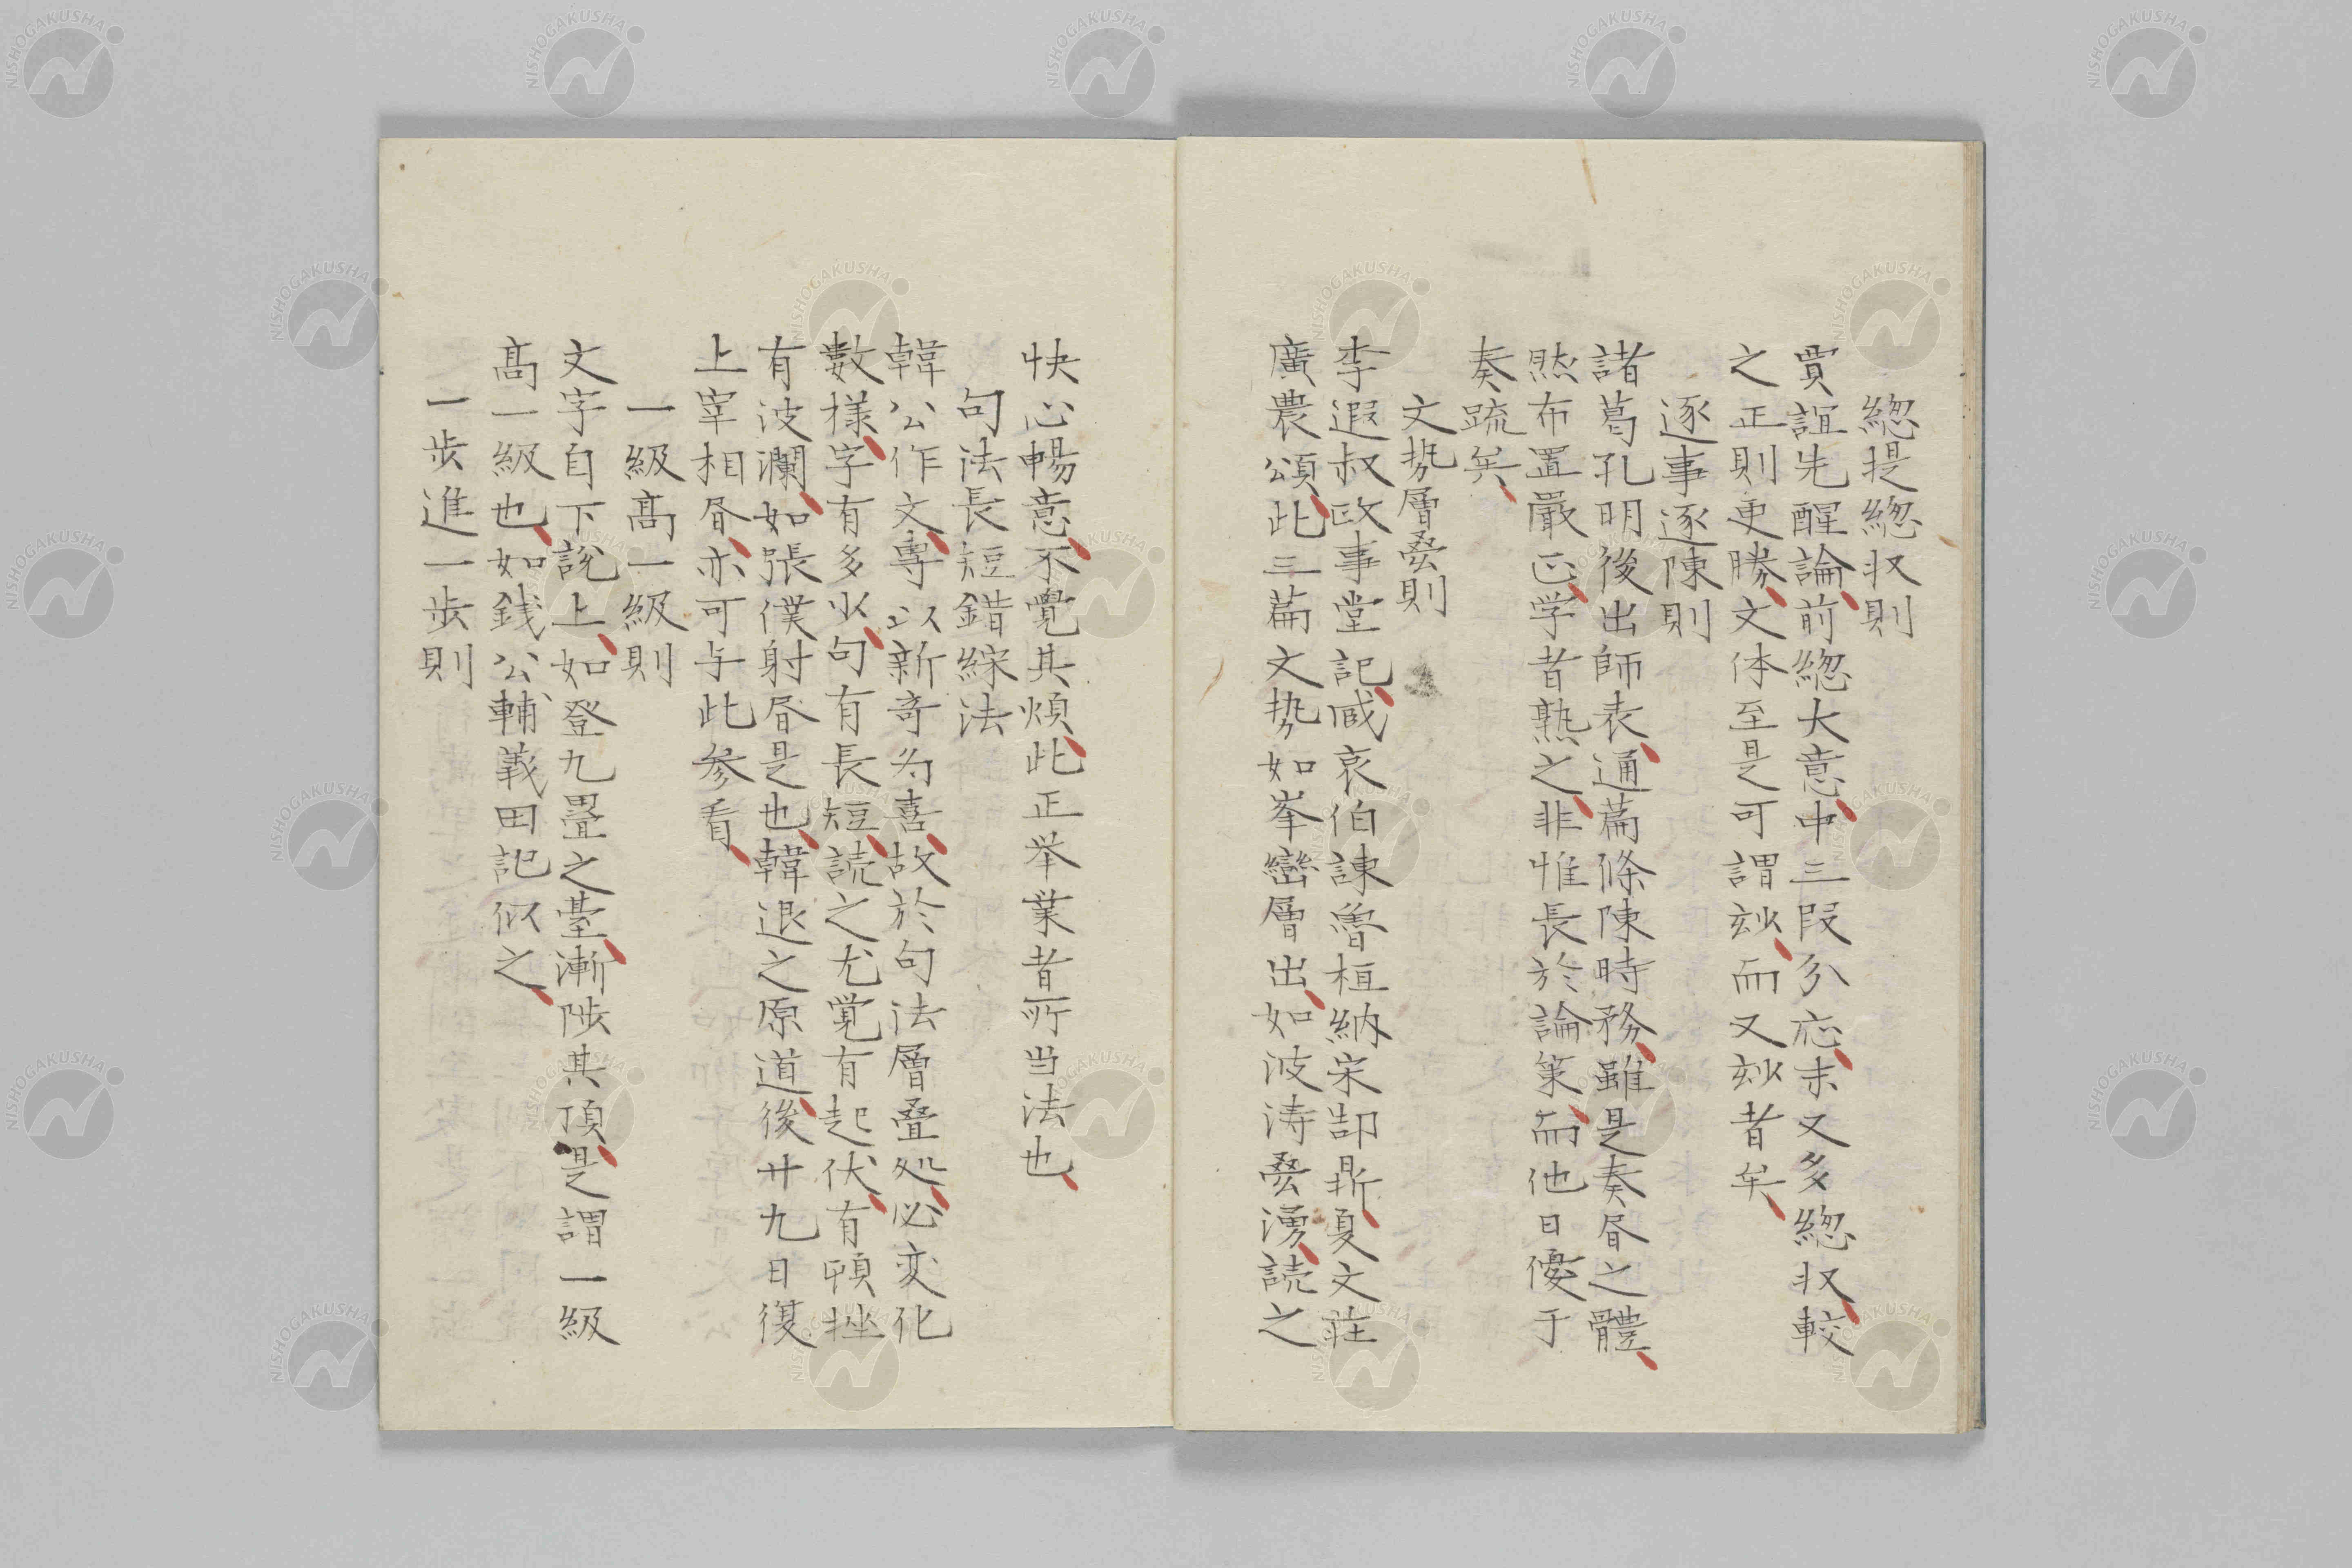 緫提緫収則
賈誼先醒論前緫大意中三段分応末又多緫収較
之正則更勝文体至是可謂玅而又玅者矣
逐事逐陳則
諸葛孔明後出師表通篇條陳時務雖是奏昏之體
然布置嚴正学者熟之非惟長於論策而他日優于
奏疏矣
文势層叠則
李遐叔政事堂記臧哀伯諌魯桓納宋郜鼎夏文莊
廣農頌此三篇文势如峯巒層出如波涛叠湧読之
快心暢意不覺其煩此正举業者所当法也
句法長短錯綜法
韓公作文專以新奇为喜故於句法層叠処必变化
數様字有多少句有長短読之尤覚有起伏有頓挫
有波瀾如張僕射昏是也韓退之原道後廿九日復
上宰相昏亦可与此参看
一級髙一級則
文字自下説上如登九疊之臺漸陟其頂是謂一級
髙一級也如銭公輔義田記似之
一歩進一歩則
NISHOGAKUSHA